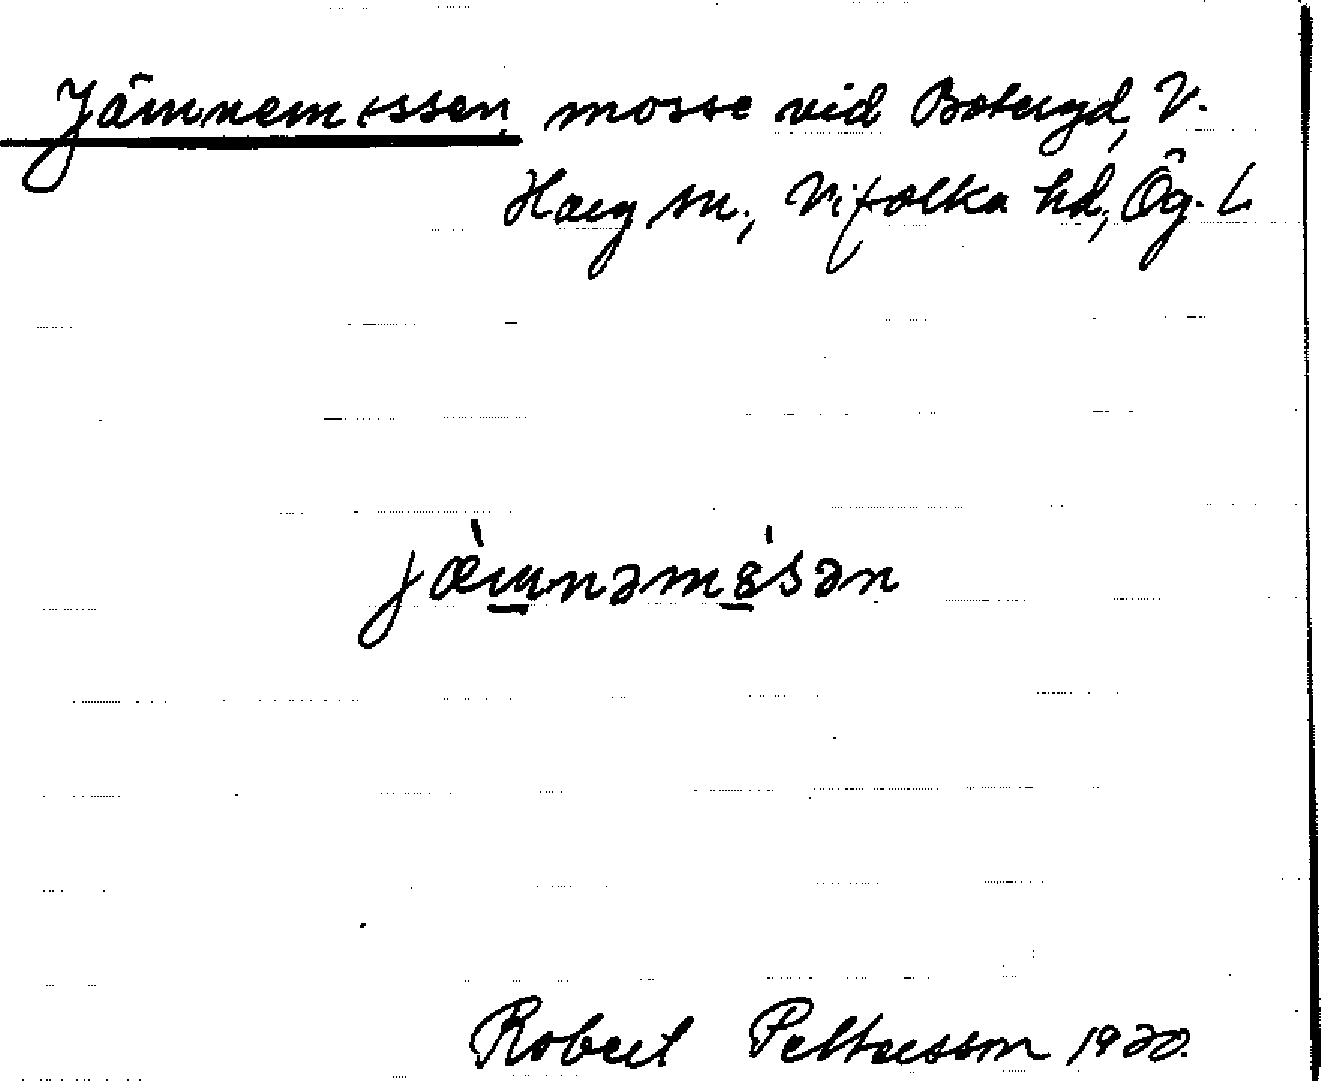 Jämnemossen, mosse vid Botergd, V.
Harg sn., Vifolka hd, Ög. L
Robert Pettersson 1930.